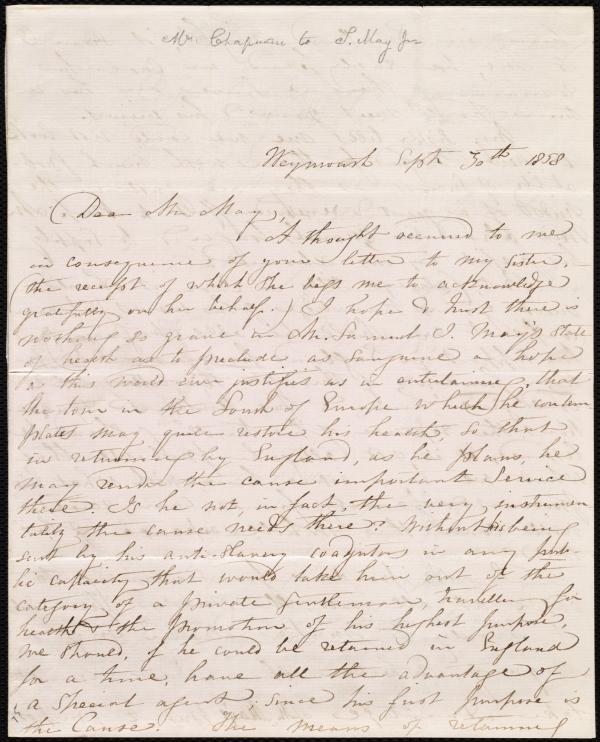 Mrs. Chapman to S. May Jr
Weymouth Sept 30th 1858
Dear Mr. May,
A thought occurred to me
in consequence of your letter to my sister,
(the receipt of which she begs me to acknowledge
gratefully on her behalf.) I hope & trust there is
nothing so grave in Mr. Samuel J. May's state
of health as to preclude as sanguine a hope
as this world ever justifies us in entertaining, that
the tour in the South of Europe which he contem
plates may quite restore his health, so that
in returning by England, as he plans, he
may render the cause important service
there. Is he not, in fact, the very instrumen
tality the cause needs there? Without his being
sent by his anti-slavery coadjutors in any pub-
lic capacity that would take him out of the
category of a private gentleman, travelling for
health & the promotion of his highest purpose,
we should, if he could be retained in England
for a time, have all the advantage of
a special agent; since his first purpose is
the Cause. The means of retaining